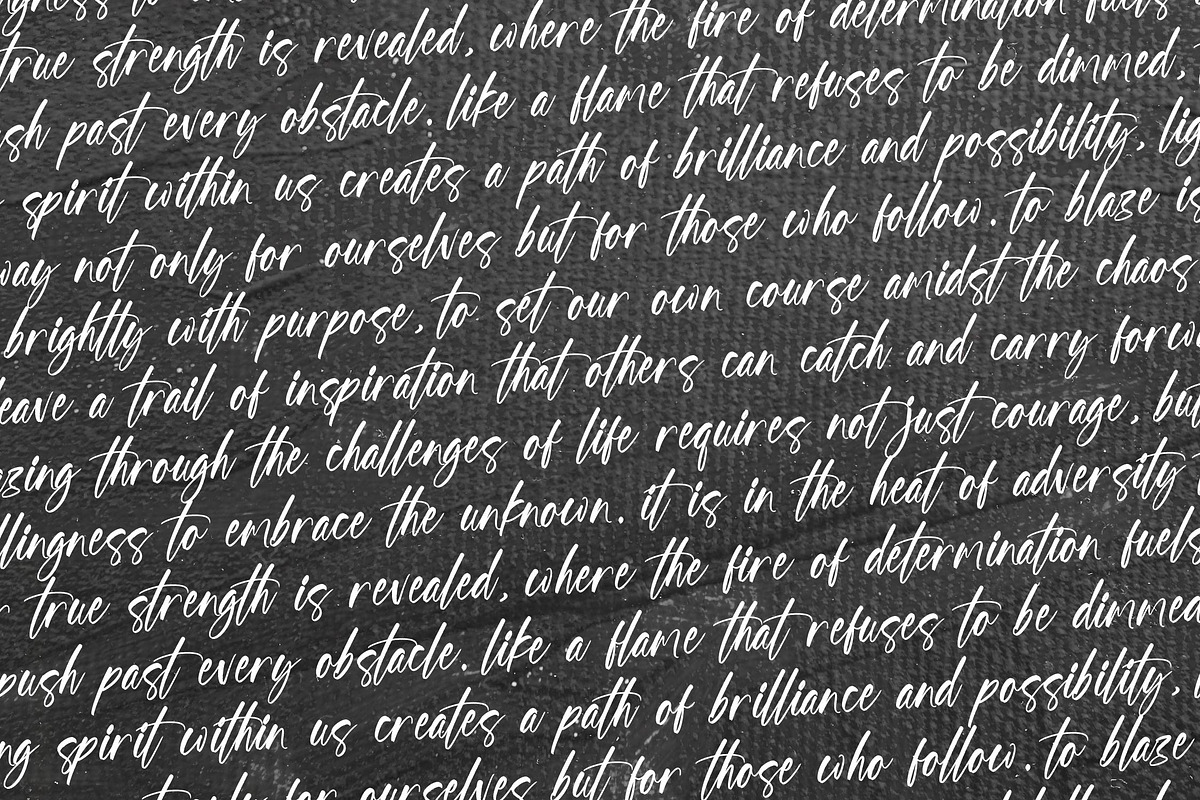 ngness to
true strength is revealed, where the fire of determination fuels
sh past every obstacle. like a flame that refuses to be dimmed,
spirit within us creates a path of brilliance and possibility, lig
way not only for ourselves but for those who follow. to blaze is
brightly with purpose, to set our own course amidst the chaos
leave a trail of inspiration that others can catch and carry forw
azing through the challenges of life requires not just courage, but
llingness to embrace the unknown. it is in the heat of adversity
r true strength is revealed, where the fire of determination fuels
push past every obstacle. like a flame that refuses to be dimmed
ng spirit within us creates a path of brilliance and possibility,
only for ourselves but for those who follow. to blaze